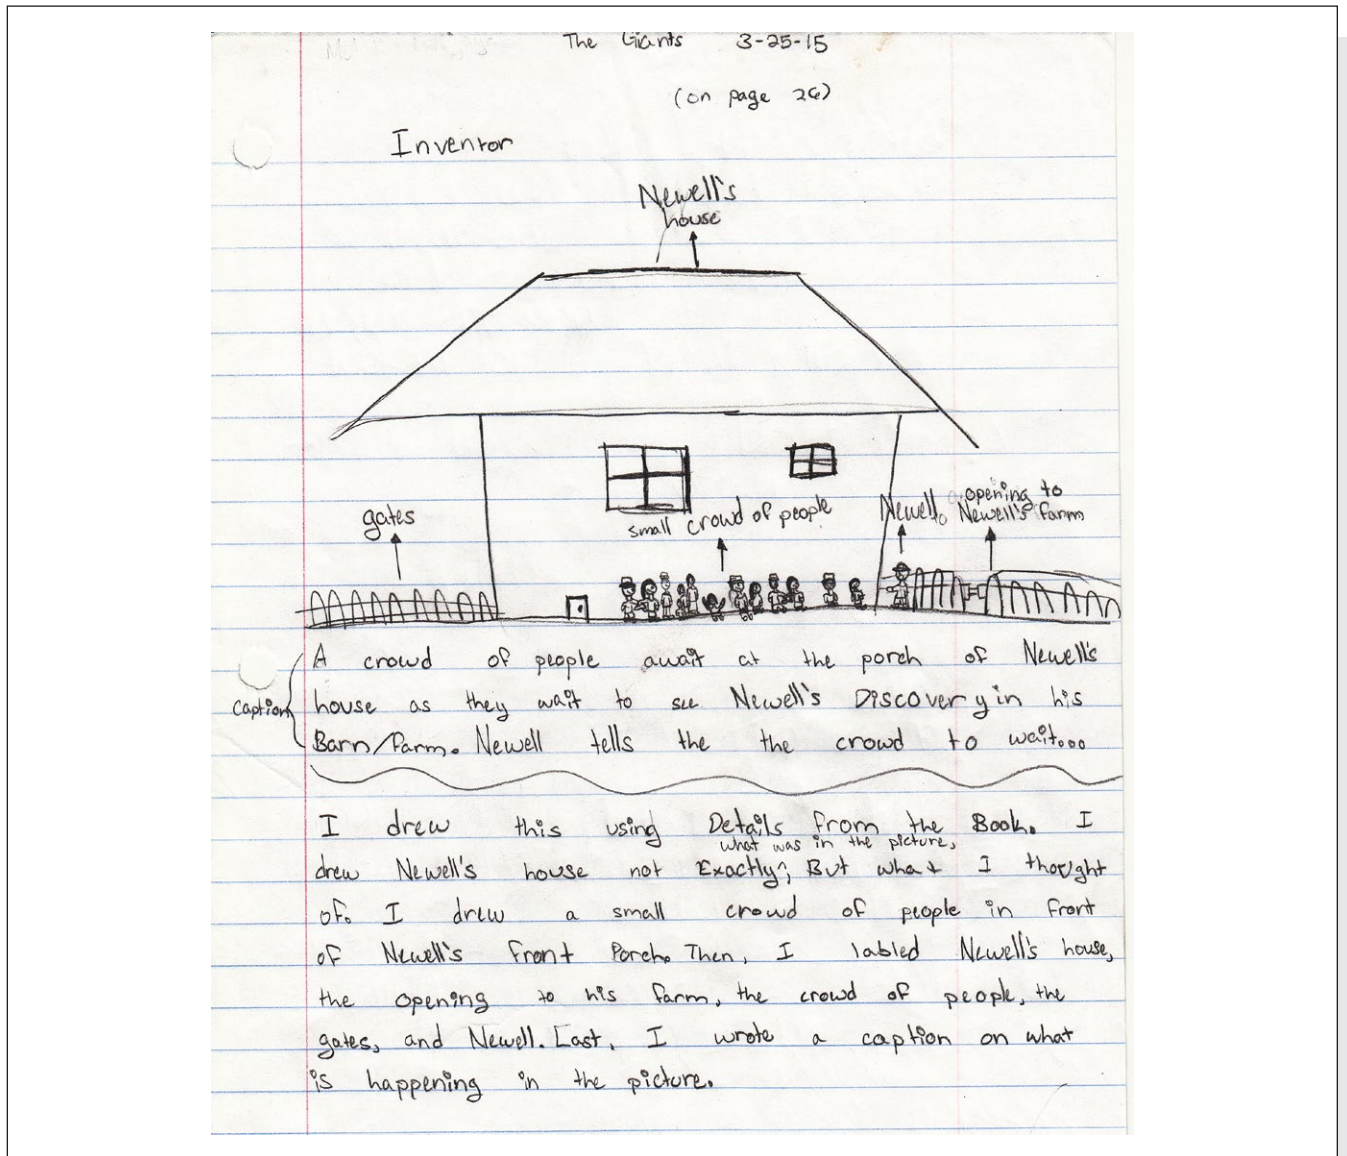 The Giants 3-25-15
(on page 26)
Inventor
Newell's
house
gates
small crowd of people
Newell
opening to
Newell's farm
A crowd of people await at the porch of Newell's
house as they wait to see Newell's Discovery in his
Barn/Farm. Newell tells the the crowd to wait...
Caption
I drew this using Details from the Book. I
what was in the picture,
drew Newell's house not Exactly^, But what I thought
of. I drew a small crowd of people in front
of Newell's Front Porch. Then, I labled Newell's house,
the opening to his farm, the crowd of people, the
gates, and Newell. Last, I wrote a caption on what
is happening in the picture.